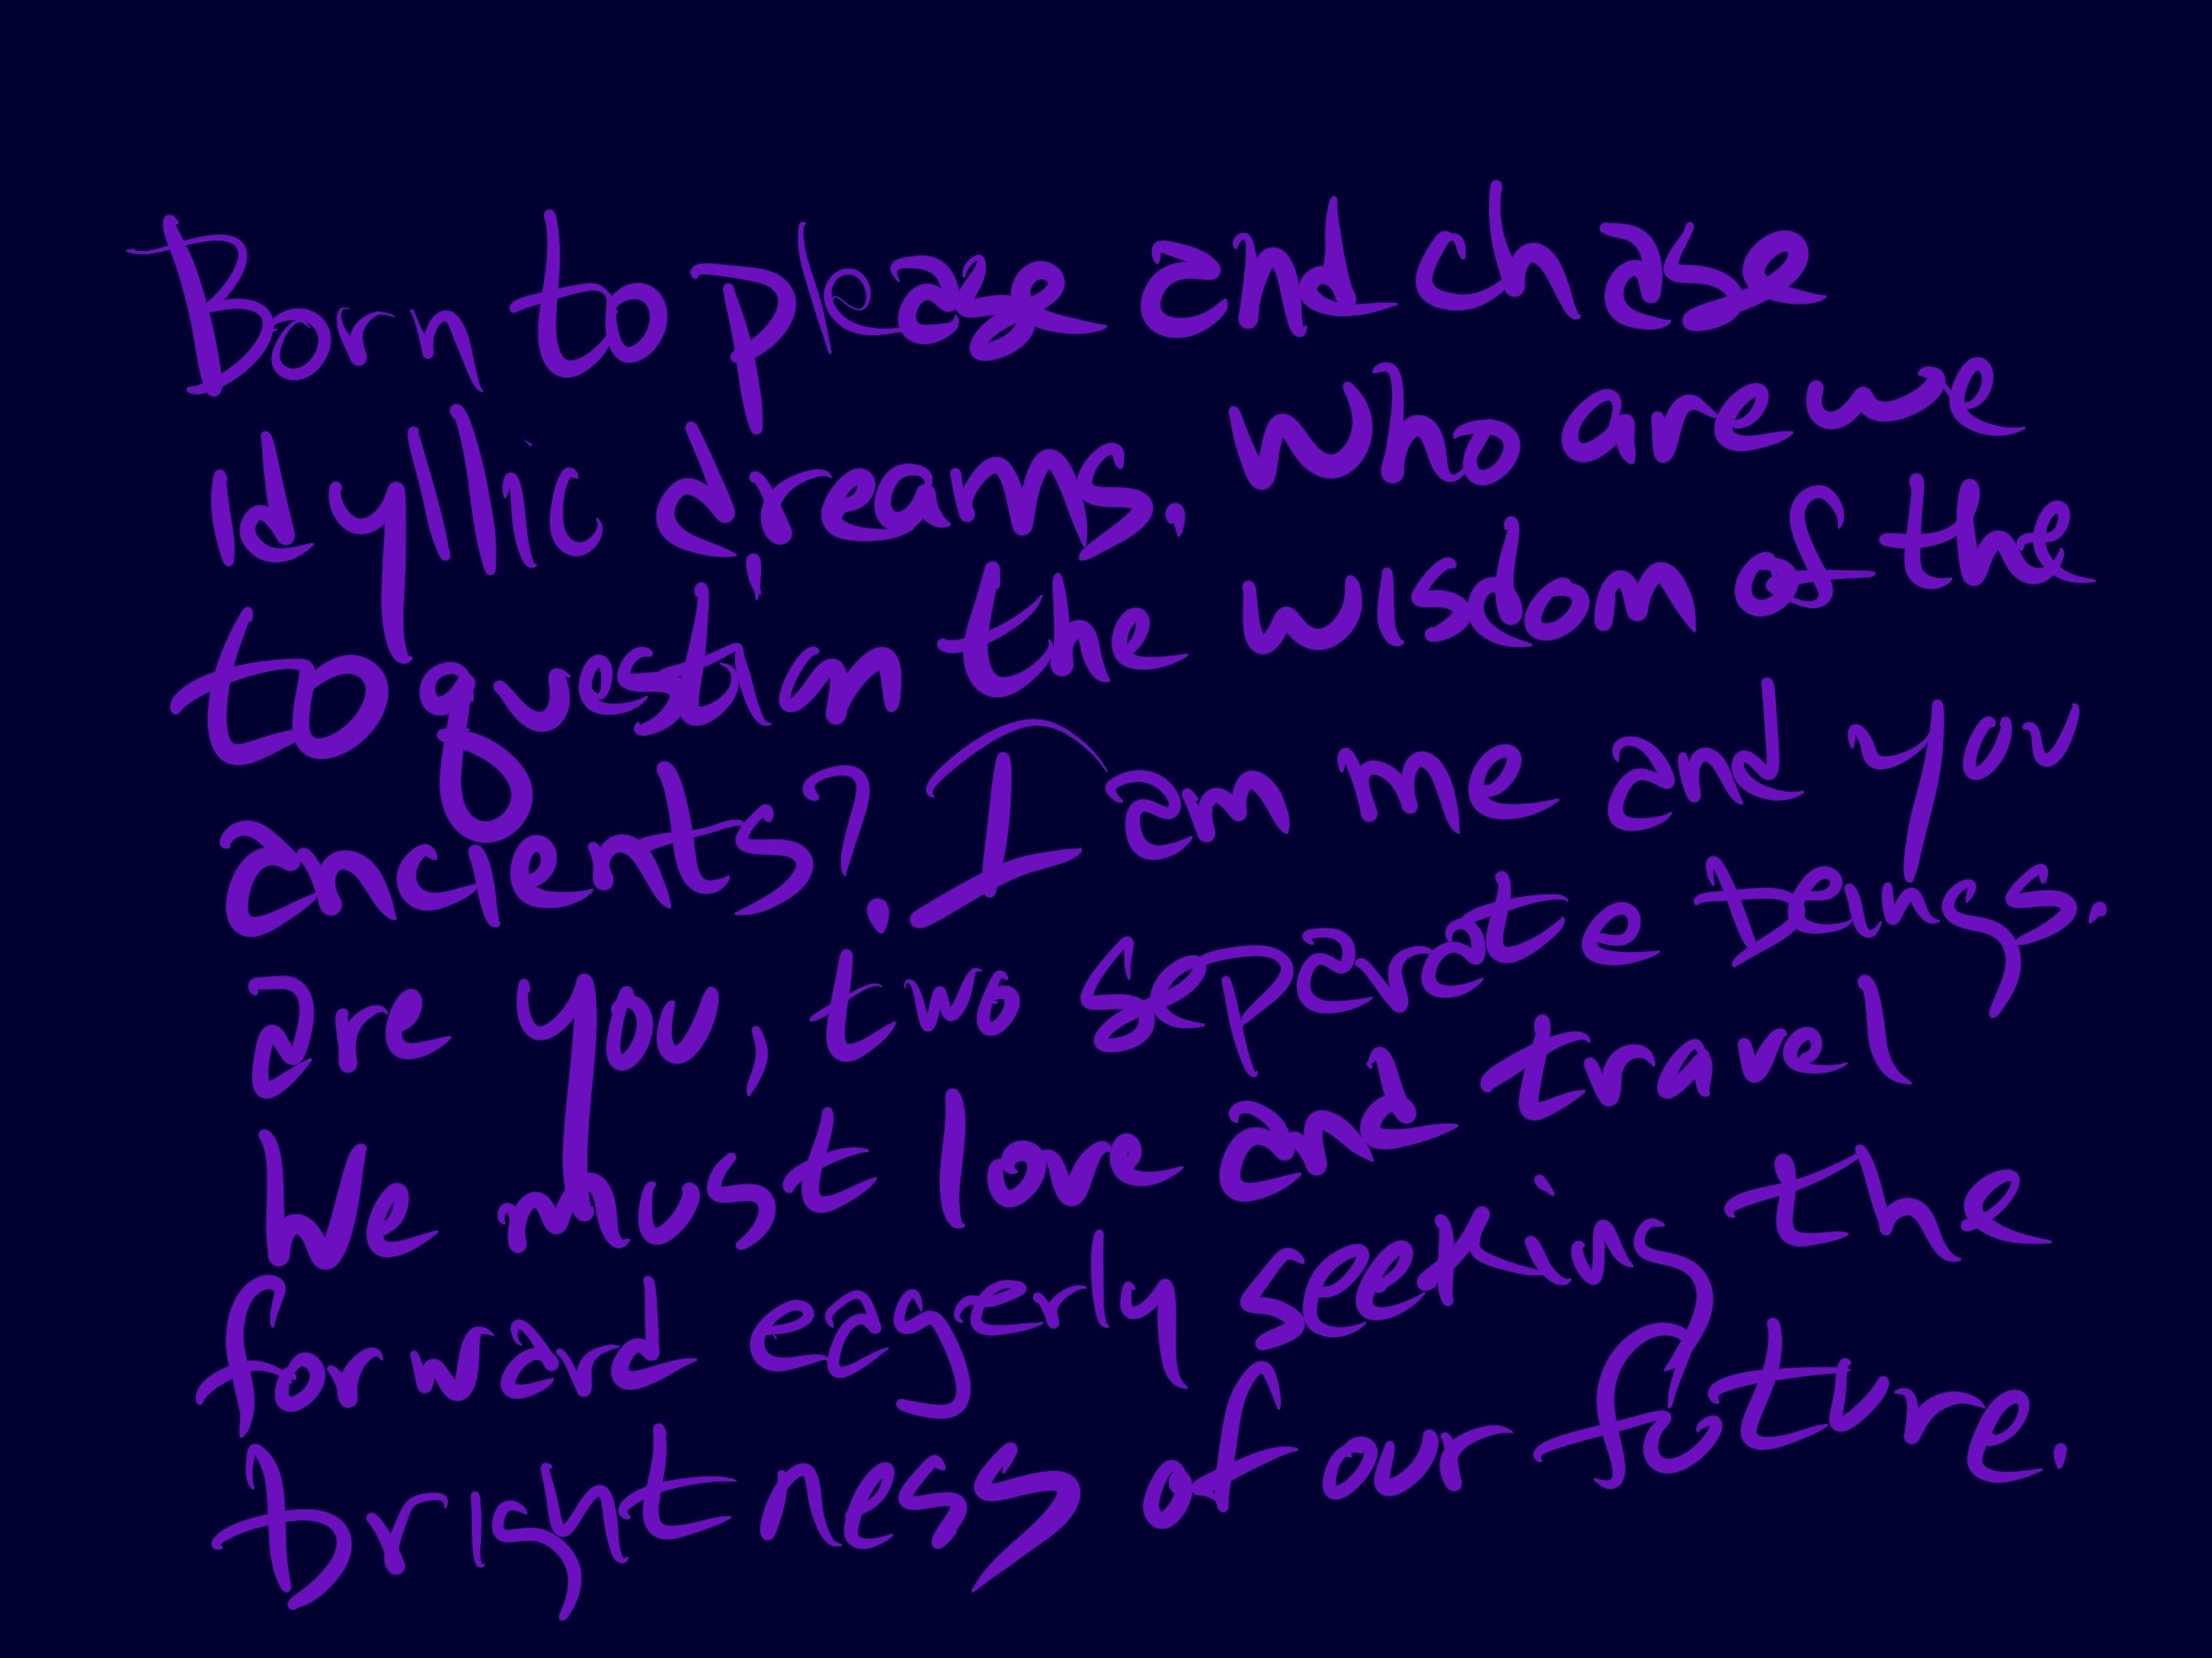 Born to please and chase
idyllic dreams. Who are we
to question the wisdom of the
ancients? I am me and you
are you, two separate beings.
We must love and travel
forward eagerly seeking the
brightness of our future.